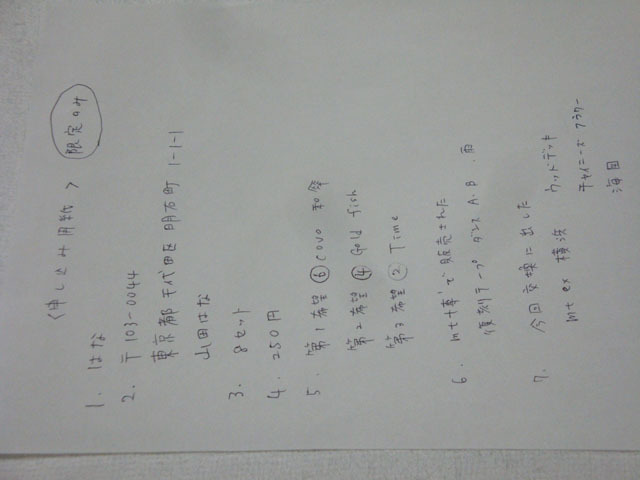 〈申し込み用紙〉 限定のみ
1. はな
2. 〒103-0044
東京都千代田区明石町 1-1-1
山田はな
3. 8セット
4. 250円
5. 第1希望 ⑥ covo 和
第2希望 ④ Gold fish
第3希望 ② Time
6. mt十事で販売された
復刻テープ ダンス A・B・雨
7. 今回交換に出した
mt ex 横浜 ウッドデッキ
チャイニーズフラワー
海図